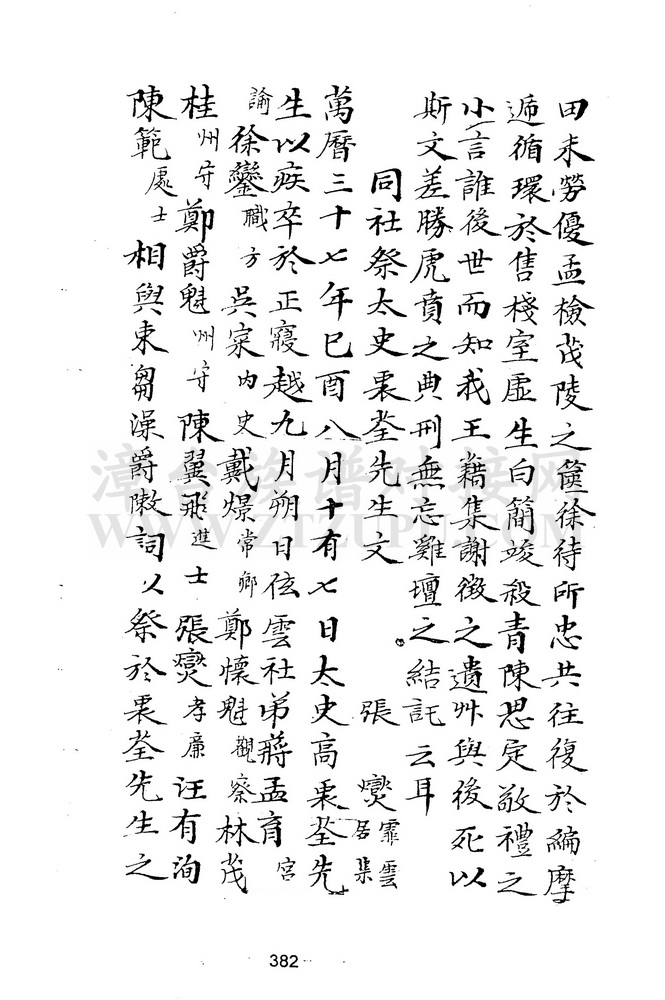 田未勞優孟檢茂陵之篋徐待所忠共往復於編摩
遞循環於售棧室虛生白簡竣殺青陳思定敬禮之
小言誰後世而知我王藉集謝徵之遺艸與後死以
斯文差勝虎賁之典刑無忘雞壇之結託云耳
同社祭太史裏荃先生文 張燮霏雲居集
萬曆三十七年巳酉八月十有七日太史高裏荃先
生以疾卒於正寢越九月朔日伭雲社弟蔣孟育宮
諭徐鑾職方吳寀內史戴燝常卿鄭懷魁觀察林茂
桂州守鄭爵魁州守陳翼飛進士張燮孝廉汪有洵
陳範處士相與束芻澡爵陳詞以祭於裏荃先生之
漳台族譜對接网
WWW.ZTZUPU.COM
382